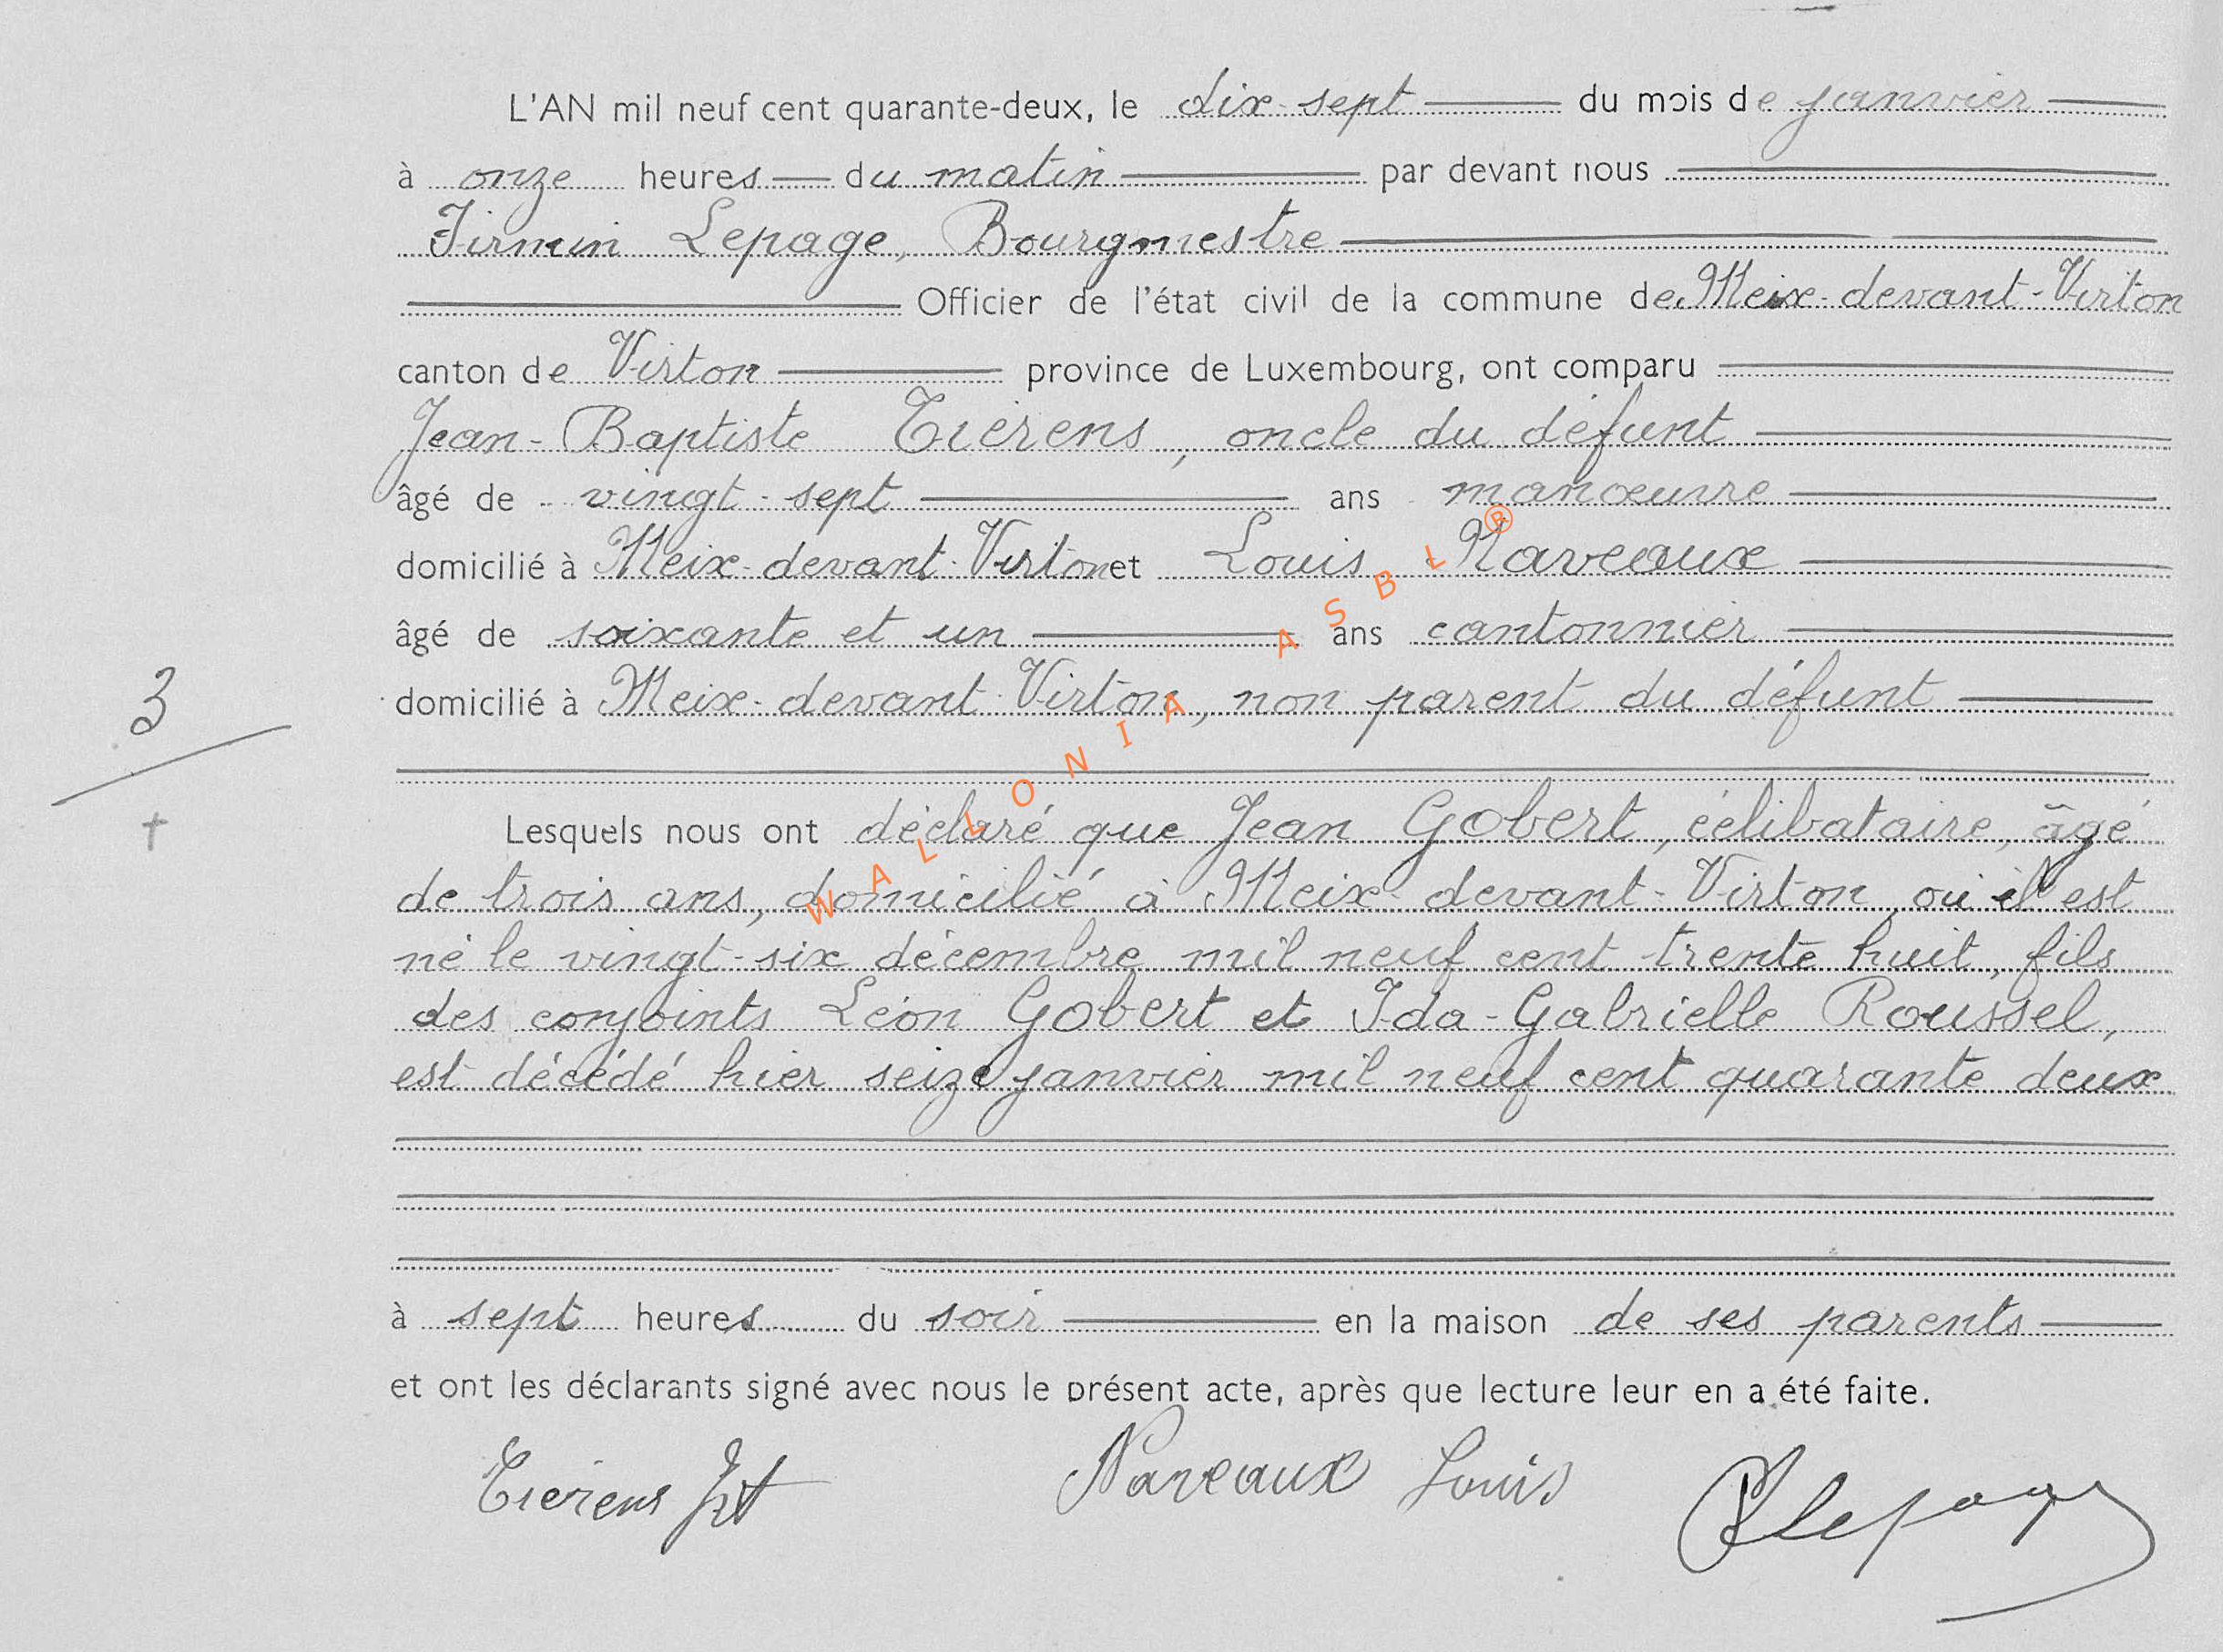 L'AN mil neuf cent quarante-deux, le dix-sept du mois de janvier
à onze heures du matin par devant nous
Firmin Lepage, Bourgmestre
Officier de l'état civil de la commune de Meix-devant-Virton
canton de Virton province de Luxembourg, ont comparu
Jean-Baptiste Tiérens, oncle du défunt
âgé de vingt-sept ans manœuvre
domicilié à Meix-devant-Virton et Louis Naveaux
âgé de soixante et un ans cantonnier
3
domicilié à Meix-devant-Virton, non parent du défunt
Lesquels nous ont déclaré que Jean Gobert, célibataire, âgé
de trois ans, domicilié à Meix-devant-Virton, où il est
né le vingt-six décembre mil neuf cent trente huit, fils
des conjoints Léon Gobert et Ida-Gabrielle Roussel,
est décédé hier seize janvier mil neuf cent quarante deux
à sept heures du soir en la maison de ses parents
et ont les déclarants signé avec nous le présent acte, après que lecture leur en a été faite.
Tiérens Jbt Naveaux Louis FLepage
WALLONIA ASBL ®